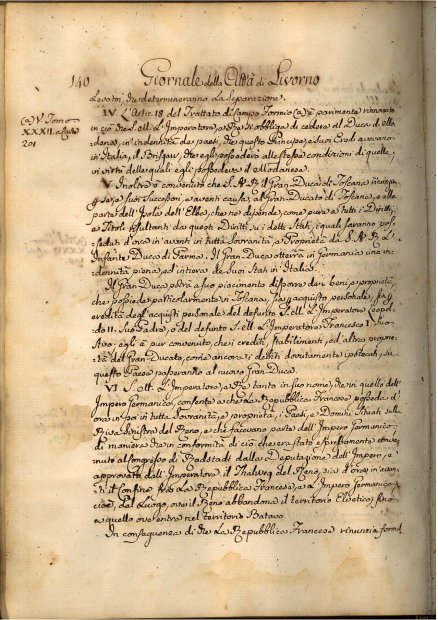 140 Giornale della Città di Livorno
Levatori, che determineranno La Separazione.
(a) V. Tomo
XXXII. a Carte
201
IV. L'Artic. 18 del Trattato di Campo Formio (a) è parimente rinnovato
in ciò che S. M. L'Imperatore, e Re si obbliga di cedere al Duca di Mo-
dena, in indennità de paesi, che questo Principe, e suoi Eredi avevano
in Italia, il Brisgaw, che egli possederà alle stesse condizioni di quelle,
in virtù delle quali egli possedeva il Modanese.
V. Inoltre è convenuto che S. A. R. il Gran-Duca di Toscana rinunzia
per se, e suoi Successori, e aventi causa, al Gran-Ducato di Toscana, e alla
parte dell'Isola dell'Elba, che ne dipende, come pure a tutti i Diritti,
e Titoli resultanti da questi Diritti su i detti Stati, i quali saranno pos-
seduti d'ora in avanti in tutta Sovranità, e Proprietà da S. A. R. L'
Infante Duca di Parma. Il Gran-Duca otterrà in Germania una in-
dennità piena, ed intiera de Suoi Stati in Italia.
Il Gran Duca potrà a suo piacimento disporre dei beni, e proprietà,
che possiede particolarmente in Toscana, sia per acquisto personale, sia per
eredità degli acquisti personale del defunto S. M. L'Imperatore Leopol-
do II. Suo Padre, o del defunto S. M. L'Imperatore Francesco I. Suo
Avo; egli è pur convenuto, che i crediti, stabilimenti, ed altre proprie-
tà del Gran-Ducato, come ancora i debiti dovutamente ipotecati, su
questo Paese passeranno al nuovo Gran Duca.
VI. S. M. L'Imperatore, e Re tanto in suo nome, che in quello dell'
Impero Germanico, consente a che La Repubblica Francese possieda d'
ora in poi in tutta Sovranità, e proprietà, i Paesi, e Domini Situati sulla
Riva Sinistra del Reno, e che facevano parte dell'Impero Germanico,
di maniera che in conformità di ciò che era stato espressamente conve-
nuto al Congresso di Radstadt dalla Deputazione dell'Impero, e
approvato dall'Imperatore, il Thalweg del Reno, sia d'ora in avan-
ti il Confine fra La Repubblica Francese, e L'Impero Germanico,
cioè, dal Luogo, ove il Reno abbandona il territorio Elvetico, fino
a quello ove entra nel territorio Batavo.
In conseguenza di che La Repubblica Francese rinunzia formal